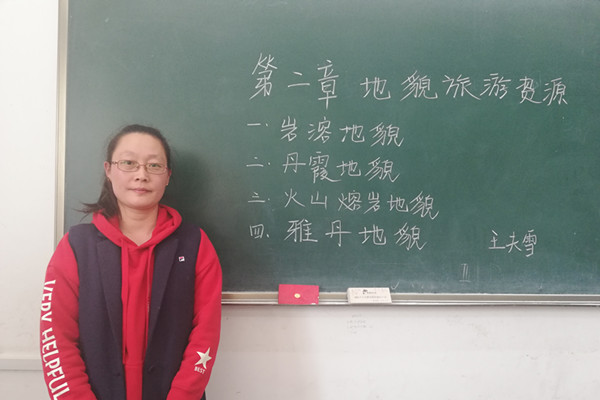 第二章 地貌旅游资源
一.岩溶地貌
二.丹霞地貌
三.火山熔岩地貌
四.雅丹地貌
王夫雪
VERY HELPFUL
BEST